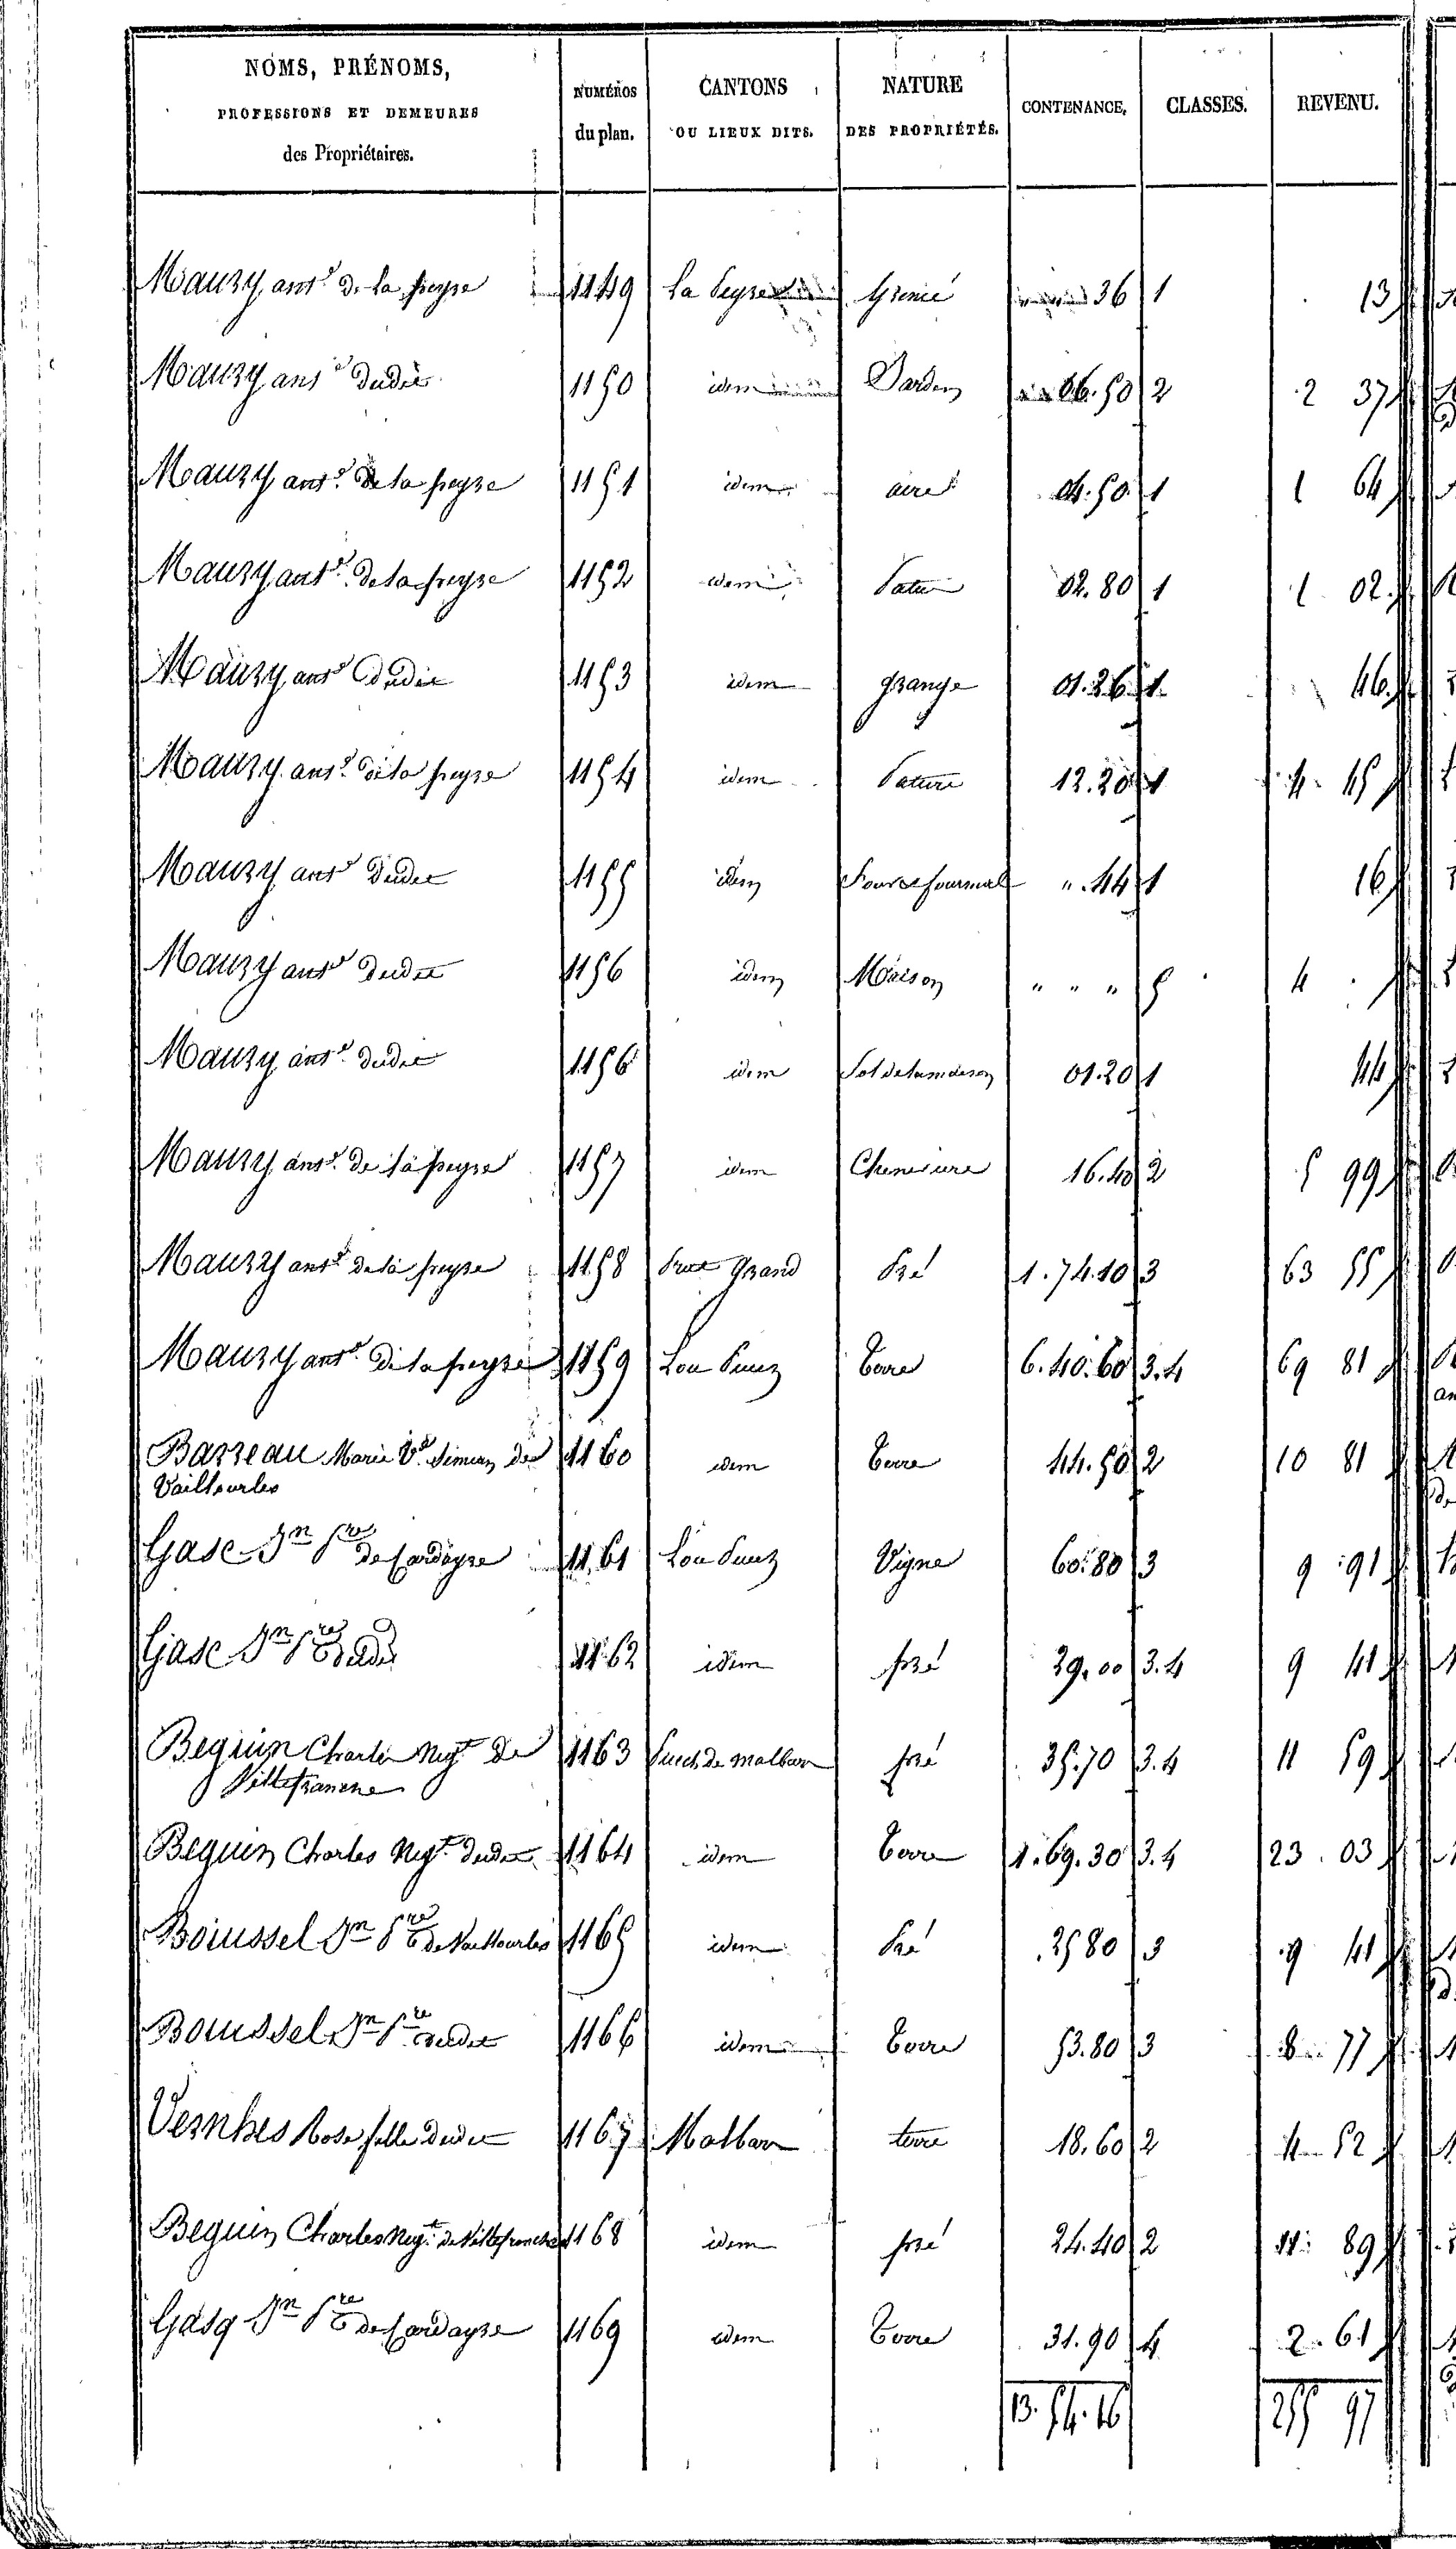 NOMS, PRÉNOMS, PROFESSIONS ET DEMEURES des Propriétaires. | NUMÉROS du plan. | CANTONS OU LIEUX DITS. | NATURE DES PROPRIÉTÉS. | CONTENANCE. | CLASSES. | REVENU.
Mauzy ant.e de la peyre 1149 La Peyre 36 1 13
Mauzy ant.e dudit 1150 idem 06.50 2 2 37
Mauzy ant.e de la peyre 1151 idem aire 04.50 1 1 64
Mauzy ant.e de la peyre 1152 idem Patus 02.80 1 1 02
Mauzy ant.e dudit 1153 idem grange 01.26 1 46
Mauzy ant.e de la peyre 1154 idem Pature 12.20 1 4 45
Mauzy ant.e dudit 1155 idem ".44 1 16
Mauzy ant.e dudit 1156 idem Maison " " " 5 4
Mauzy ant.e dudit 1156 idem Sol de la maison 01.20 1 44
Mauzy ant.e de la peyre 1157 idem Cheneviere 16.40 2 5 99
Mauzy ant.e de la peyre 1158 Prat grand Pré 1.74.10 3 63 55
Mauzy ant.e de la peyre 1159 Lou Puech Terre 6.40.60 3.4 69 81
Barreau Marie V.e de 1160 idem Terre 44.50 2 10 81
Vailhourles
Gasc Jn Pre de Cardayre 1161 Lou Puech Vigne 60.80 3 9 91
Gasc Jn Pre dudit 1162 idem pré 29.00 3.4 9 41
Bequin Charles Negt de 1163 Puech de malbar pré 35.70 3.4 11 59
Villefranche
Bequin Charles Negt dudit 1164 idem Terre 1.69.30 3.4 23 03
Bouissel Jn Pre de Vailhourles 1165 idem Pré 25 80 3 9 41
Bouissel Jn Pre dudit 1166 idem Terre 53.80 3 8 77
Vernhes Rose fille dudit 1167 Malbar terre 18.60 2 4 52
Bequin Charles Negt de Villefranche 1168 idem pré 24.40 2 11 89
Gasq Jn Pre de Cardayre 1169 idem Terre 31.90 4 2.61
13.54.16 255 97